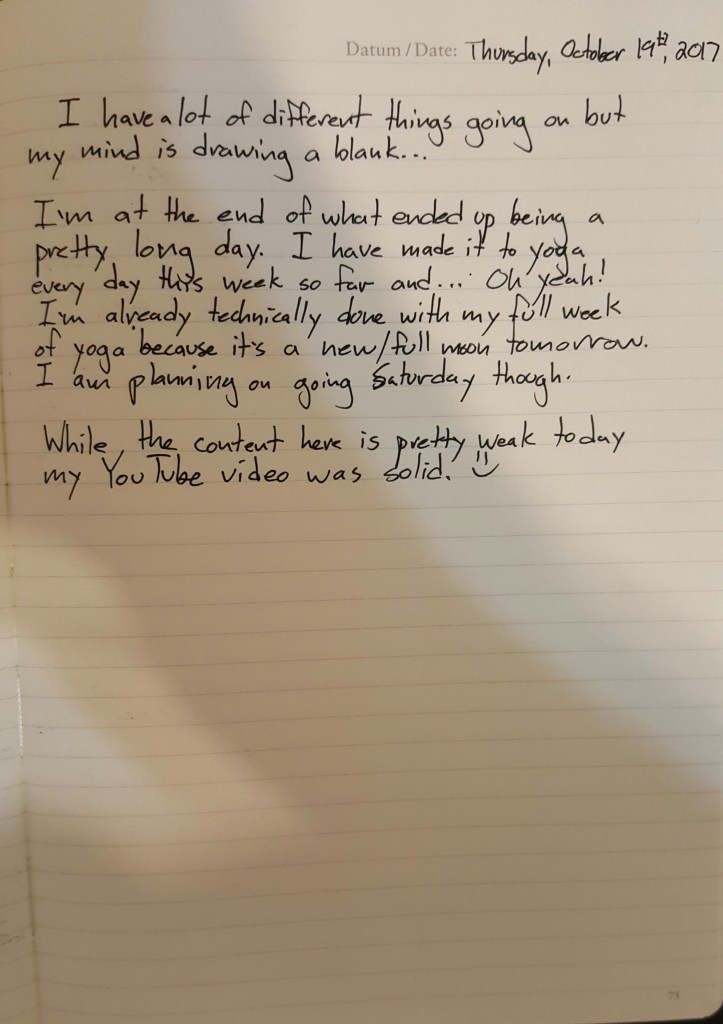 Datum / Date: Thursday, October 19th, 2017
I have a lot of different things going on but
my mind is drawing a blank...
I'm at the end of what ended up being a
pretty long day. I have made it to yoga
every day this week so far and... Oh yeah!
I'm already technically done with my full week
of yoga because it's a new/full moon tomorrow.
I am planning on going Saturday though.
While, the content here is pretty weak today
my YouTube video was solid. :)
73